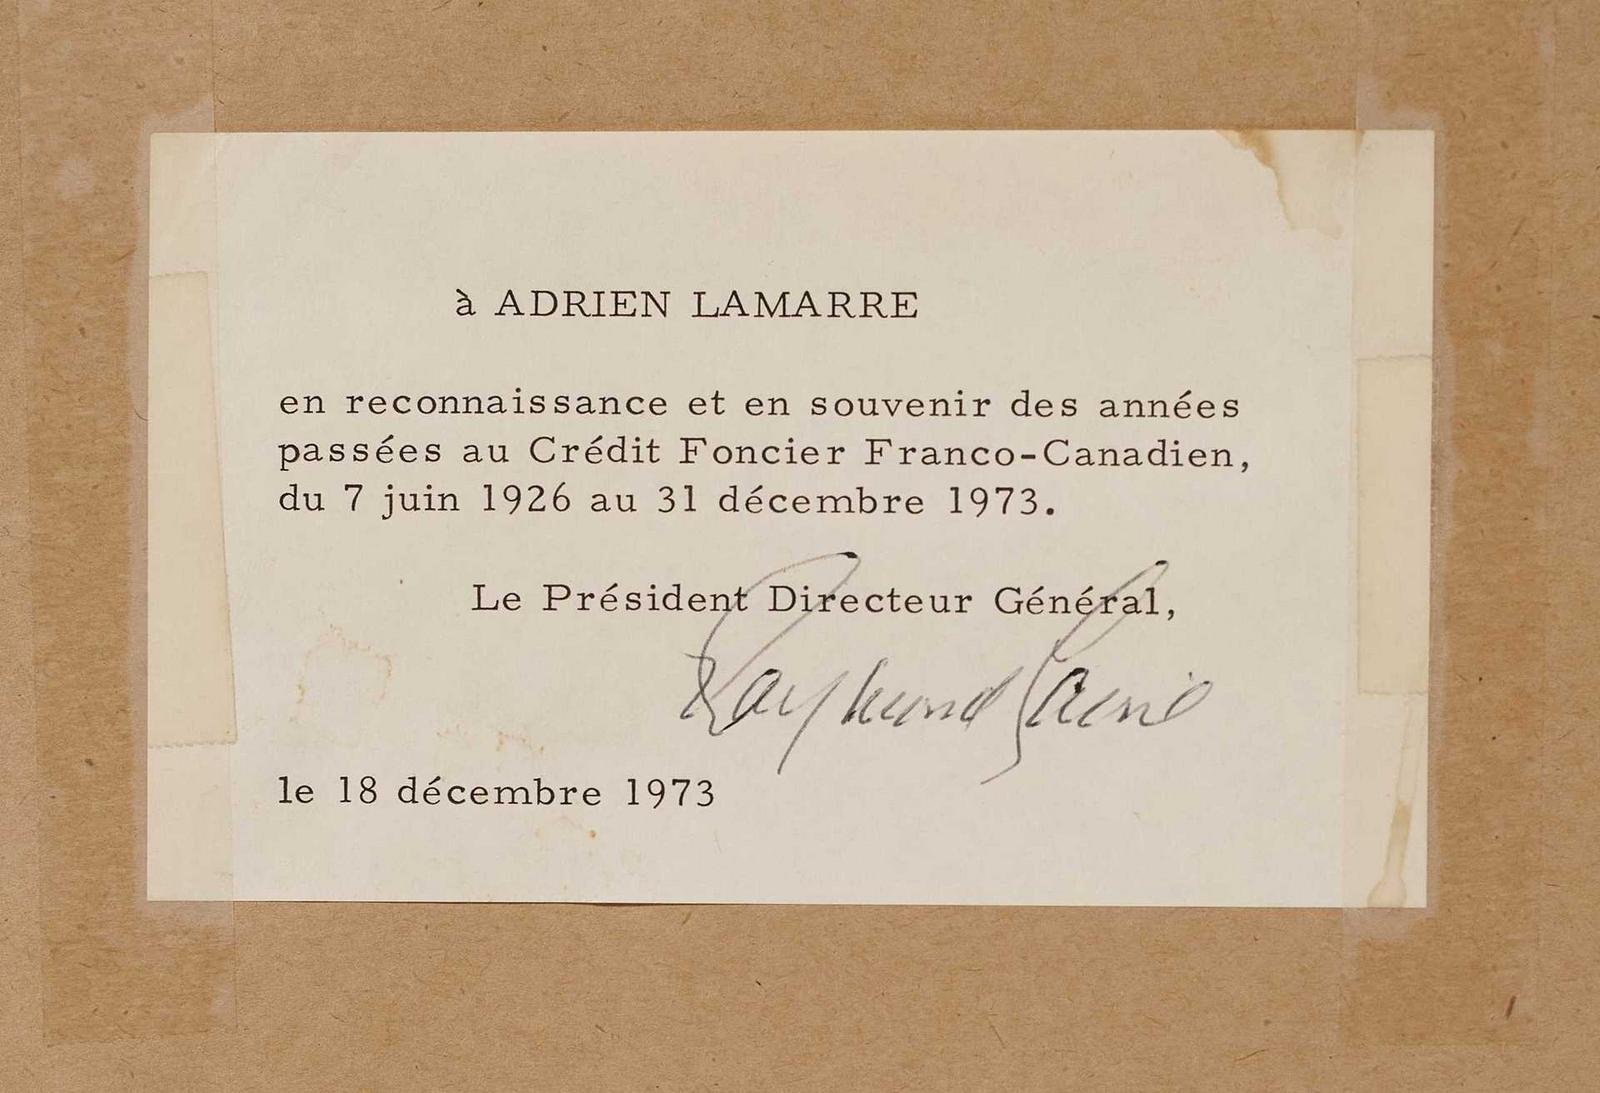 à ADRIEN LAMARRE
en reconnaissance et en souvenir des années
passées au Crédit Foncier Franco-Canadien,
du 7 juin 1926 au 31 décembre 1973.
Le Président Directeur Général,
Raymond
le 18 décembre 1973